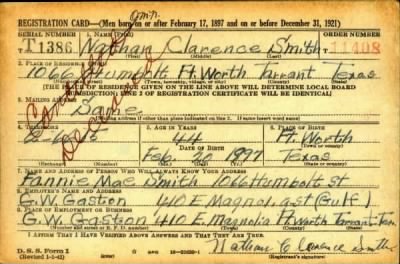 REGISTRATION CARD—(Men born on or after February 17, 1897 and on or before December 31, 1921)
SERIAL NUMBER 1. NAME (Print) ORDER NUMBER
T1386 Nathan Clarence Smith T11408
(First) (Middle) (Last)
2. PLACE OF RESIDENCE (Print)
1066 Humbolt Ft. Worth Tarrant Texas
(Number and street) (Town, township, village, or city) (County) (State)
[THE PLACE OF RESIDENCE GIVEN ON THE LINE ABOVE WILL DETERMINE LOCAL BOARD
JURISDICTION; LINE 2 OF REGISTRATION CERTIFICATE WILL BE IDENTICAL]
3. MAILING ADDRESS
Same
[Mailing address if other than place indicated on line 2. If same insert word same]
4. TELEPHONE 5. AGE IN YEARS 6. PLACE OF BIRTH
44 Ft Worth
DATE OF BIRTH
Feb. 20 1897 Texas
(Exchange) (Number) (Mo.) (Day) (Yr.) (State or country)
7. NAME AND ADDRESS OF PERSON WHO WILL ALWAYS KNOW YOUR ADDRESS
Fannie Mae Smith 1066 Humbort St
8. EMPLOYER'S NAME AND ADDRESS
G.W. Gaston 410 E. Magnol. a st (Gulf)
9. PLACE OF EMPLOYMENT OR BUSINESS
G.W. Gaston 410 E. Magnolia Ft Worth Tarrant Tex.
(Number and street or R. F. D. number) (Town) (County) (State)
I AFFIRM THAT I HAVE VERIFIED ABOVE ANSWERS AND THAT THEY ARE TRUE.
D. S. S. Form 1
(Revised 1-1-42) (over) Nathan Clarence Smith